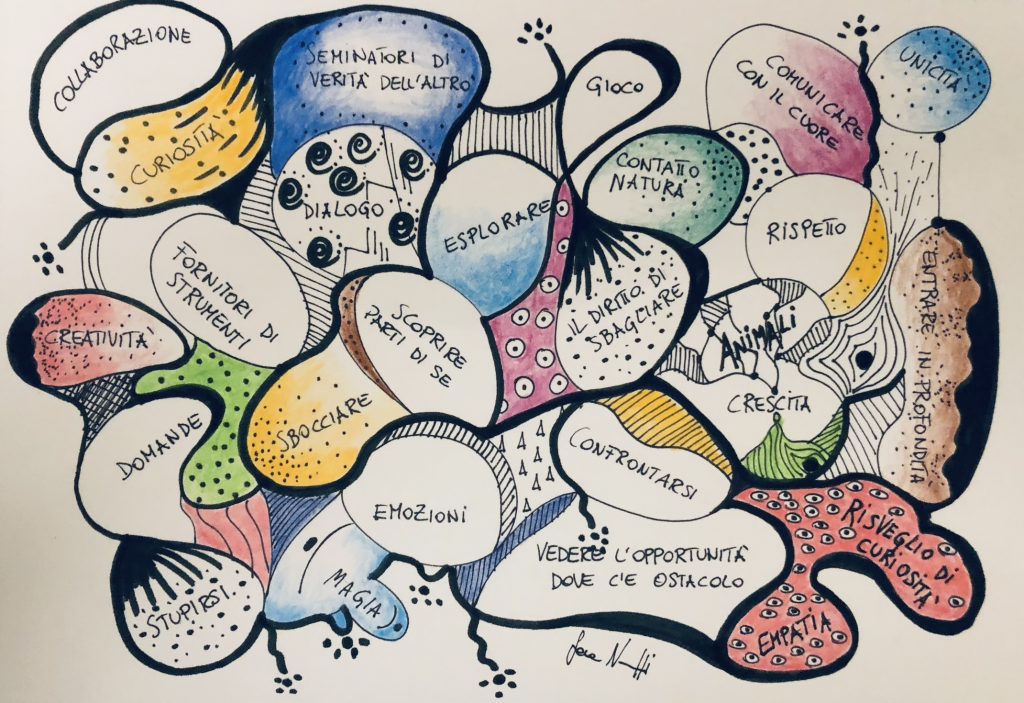 COLLABORAZIONE
CURIOSITÀ
SEMINATORI DI
VERITÀ DELL'ALTRO
DIALOGO
GIOCO
COMUNICARE
CON IL CUORE
UNICITÀ
CONTATTO
NATURA
ESPLORARE
RISPETTO
FORNITORI DI
STRUMENTI
CREATIVITÀ
SCOPRIRE
PARTI DI SE
IL DIRITTO DI
SBAGLIARE
ANIMALI
CRESCITA
ENTRARE IN PROFONDITÀ
DOMANDE
SBOCCIARE
EMOZIONI
CONFRONTARSI
VEDERE L'OPPORTUNITÀ
DOVE C'E OSTACOLO
RISVEGLIO DI
CURIOSITÀ
EMPATIA
STUPIRSI
MAGIA